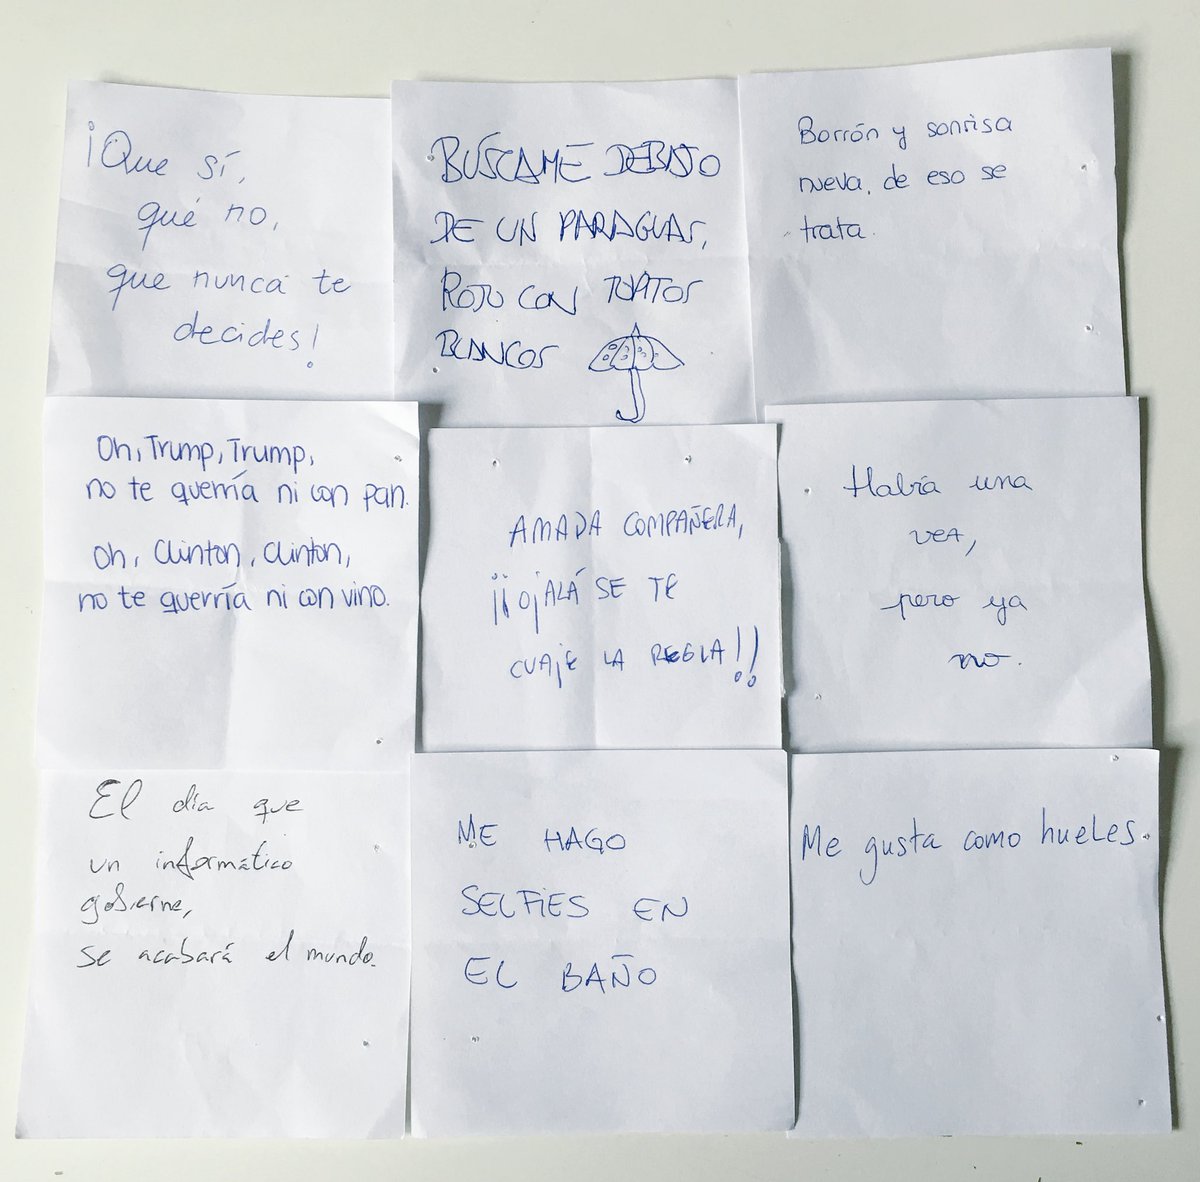 ¡Que sí,
qué no,
que nunca te
decides!
BÚSCAME DEBAJO
DE UN PARAGUAS,
ROJO CON TOPITOS
BLANCOS
Borrón y sonrisa
nueva, de eso se
trata.
Oh, Trump, Trump,
no te querría ni con pan.
Oh, Clinton, Clinton,
no te querría ni con vino.
AMADA COMPAÑERA,
¡¡OjALÁ SE TE
CUAjE LA REGLA!!
Había una
vez,
pero ya
no.
El día que
un informático
gobierne,
se acabará el mundo.
ME HAGO
SELFIES EN
EL BAÑO
Me gusta como hueles.